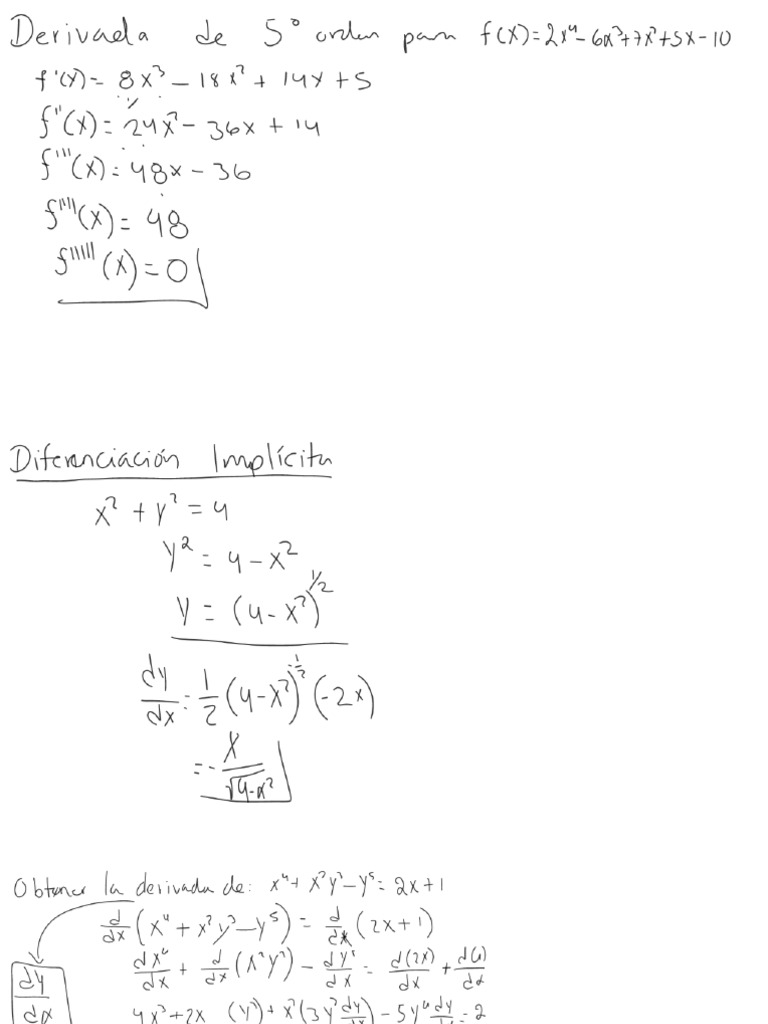 Derivada de 5° orden para f(x)=2x⁴-6x³+7x²+5x-10
f'(x)= 8x³-18x²+14x+5
f''(x)=24x²-36x+14
f''''(x)=48x-36
f''''(x)=48
f'''''(x)=0
Diferenciación Implícita
x²+y²=4
y²=4-x²
y=(4-x²)^1/2
dy/dx=1/2(4-x²)^-1/2(-2x)
=-x/√4-x²
Obtener la derivada de: x⁴+x²y³-y⁵=2x+1
d/dx(x⁴+x²y³-y⁵)=d/dx(2x+1)
dx⁴/dx+d/dx(x²y³)-dy⁵/dx=d(2x)/dx+d(1)/dx
dy/dx
4x³+2x(y³)+x²(3y²dy/dx)-5y⁴dy/dx=2